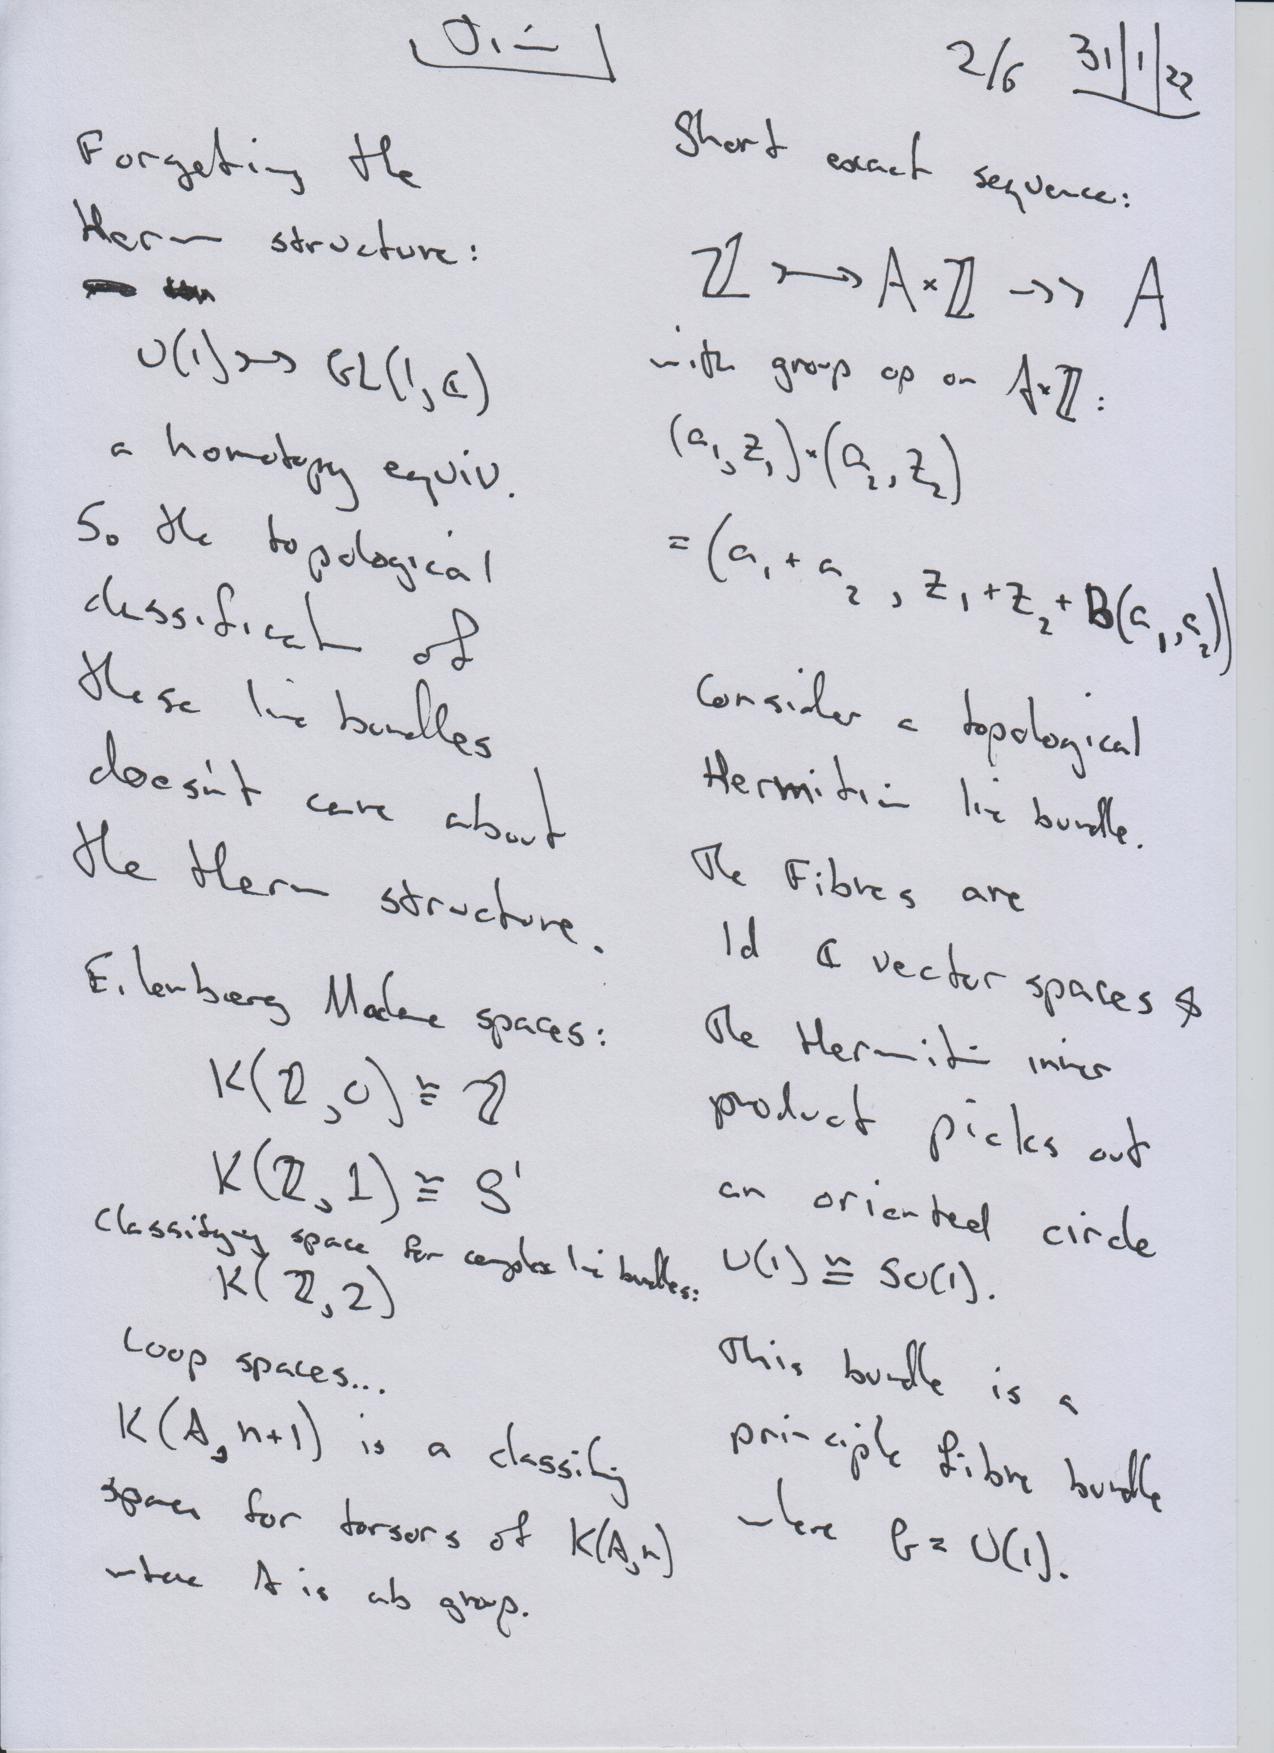 2/6 31/1/22
Forgeting the
Herm structure:
U(1) ↣ GL(1,ℂ)
a homotopy equiv.
So the topological
classificat of
these line bundles
doesn't care about
the Herm structure.
Eilenberg Maclane spaces:
K(ℤ,0) ≅ ℤ
K(ℤ,1) ≅ S¹
Classifying space for complex line bundles:
K(ℤ,2)
Loop spaces...
K(A,n+1) is a classifying
space for torsors of K(A,n)
where A is ab group.
Short exact sequence:
ℤ ↣ A×ℤ ↠ A
with group op on A×ℤ:
(a₁,z₁)·(a₂,z₂)
= (a₁+a₂, z₁+z₂+B(a₁,a₂))
Consider a topological
Hermitian line bundle.
The Fibres are
1d ℂ vector spaces &
the Hermitian inner
product picks out
an oriented circle
U(1) ≅ SO(1).
This bundle is a
principle fibre bundle
where G = U(1).